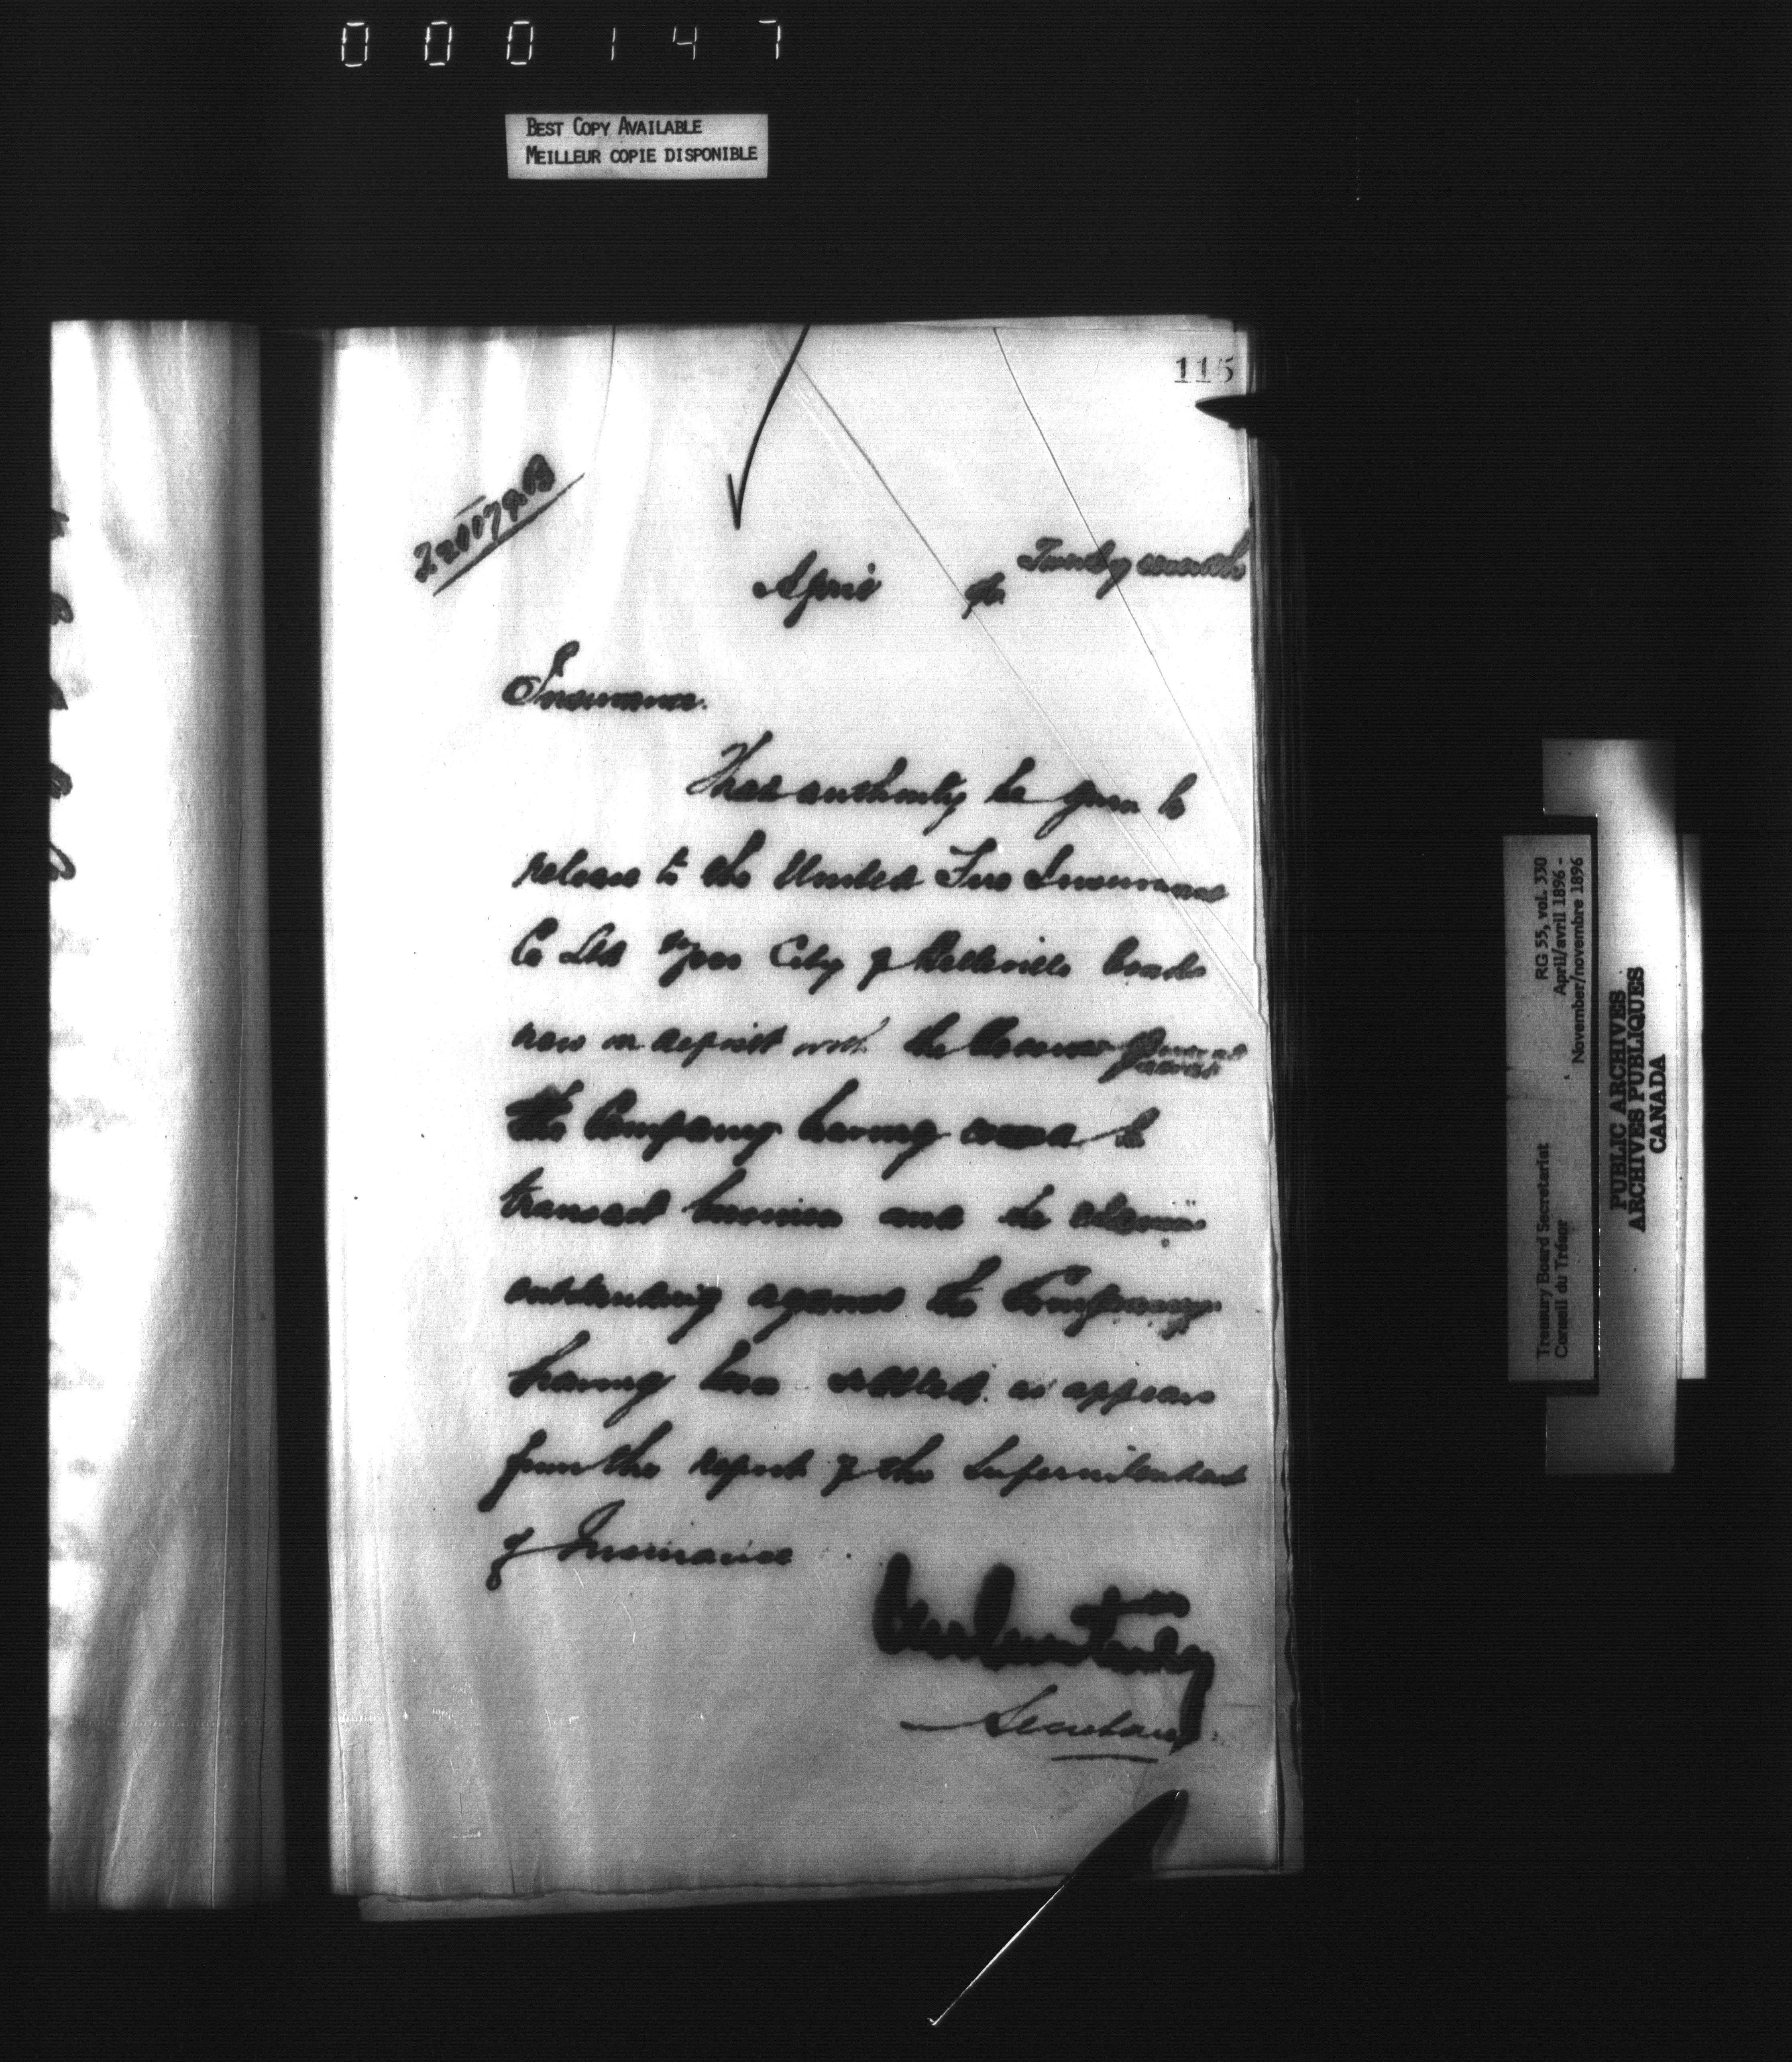 000147
BEST COPY AVAILABLE
MEILLEUR COPIE DISPONIBLE
115
April
Insurance.
That authority be given to
release to the United Fire Insurance
Co Ltd City of Belleville bonds
now on deposit with the Receiver General
the Company having ceased to
transact business and the claims
outstanding against the Company
having been settled as appears
from the report of the Superintendent
of Insurance
Secretary
RG 55, vol. 330
April/avril 1896 -
November/novembre 1896
Treasury Board Secretariat
Conseil du Trésor
PUBLIC ARCHIVES
ARCHIVES PUBLIQUES
CANADA